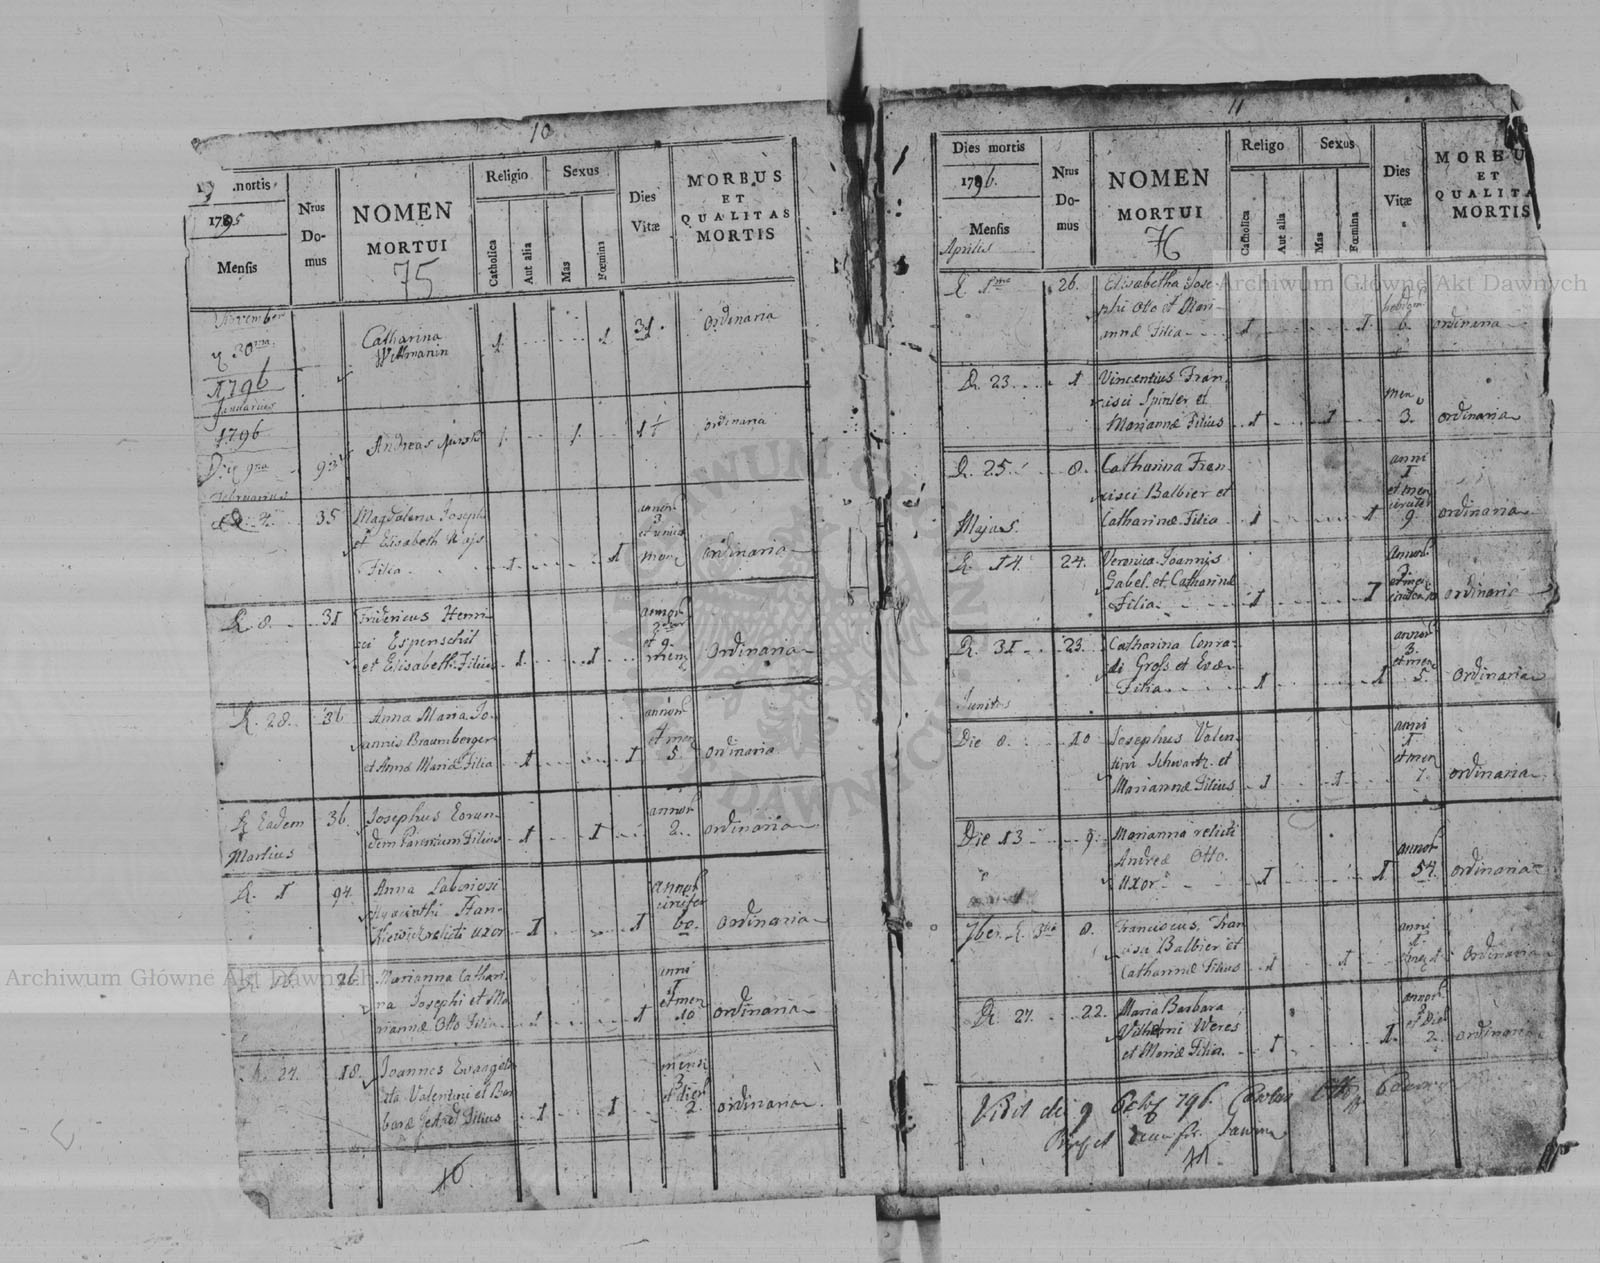 10
Dies mortis
1795
Mensis
Nrus Domus
NOMEN
MORTUI
75
Religio
Catholica
Aut alia
Sexus
Mas
Fœmina
Dies
Vitæ
MORBUS
ET
QUALITAS
MORTIS
November
30ma
Catharina
1
1
31
ordinaria
1796
Januarius
1796
Die 9na
93
Andreas
1
1
ordinaria
Februarius
D. 4
35
Magdalena Joseph
et Elisabeth
Filia
1
1
annor
3
et unius
men
ordinaria
D. 8
31
Fridericus Henri-
ci Espenschit
et Elisabeth Filius
1
1
annor
et 9
mens
ordinaria
D. 28
36
Anna Maria Jo-
annis Braumberger
et Annæ Mariæ Filia
1
1
annor
et men
5
ordinaria
D. Eadem
36
Josephus Eorun-
dem Parentum Filius
1
1
annor
2
ordinaria
Martius
D. 1
94
Anna Laboriosi
Hyacinthi Stan-
relicti uxor
1
1
annor
circiter
60
ordinaria
D. 16
26
Marianna Cathari-
na Josephi et Ma-
riannæ Otto Filia
1
1
anni
1
et men
10
ordinaria
D. 24
18
Joannes Evangeli-
sta Valentini et Bar-
baræ Filius
1
1
mens
3
et dier
2
ordinaria
10
11
Dies mortis
1796
Mensis
Nrus Domus
NOMEN
MORTUI
76
Religo
Catholica
Aut alia
Sexus
Mas
Fœmina
Dies
Vitæ
MORBUS
ET
QUALITA
MORTIS
Aprilis
D. 1ma
26
Elisabetha Jose-
phi Otto et Mari-
annæ Filia
1
1
hebdom
6
ordinaria
D. 23
1
Vincentius Fran-
cisci Spinler et
Mariannæ Filius
1
1
men
3
ordinaria
D. 25
8
Catharina Fran-
cisci Balbier et
Catharinæ Filia
1
1
anni
1
et men
circiter
9
ordinaria
Majus
D. 14
24
Veronica Joannis
Gabel et Catharinæ
Filia
1
1
annor
ordinaria
D. 31
23
Catharina Conra-
di Gross et Evæ
Filia
1
1
annor
3
et men
5
ordinaria
Junius
Die 8
10
Josephus Valen-
tini Schwartz et
Mariannæ Filius
1
1
anni
1
et men
7
ordinaria
Die 13
9
Marianna relicti
Andreæ Otto
uxor
1
1
annor
54
ordinaria
7ber
8
Franciscus Fran-
cisci Balbier et
Catharinæ Filius
1
1
anni
1
ordinaria
D. 27
22
Maria Barbara
Vilhelmi Weres
et Mariæ Filia
1
1
annor
et Dier
2
ordinaria
Vidit die 9 796
11
Archiwum Główne Akt Dawnych
Archiwum Główne Akt Dawnych